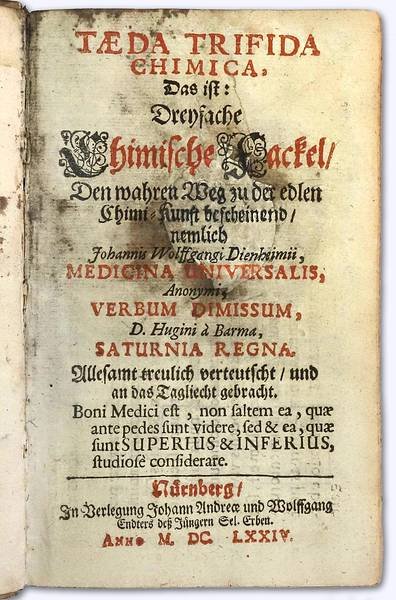 TÆDA TRIFIDA
CHIMICA,
Das ist:
Dreyfache
Chimische Fackel/
Den wahren Weg zu der edlen
Chimi-Kunst bescheinend/
nemlich
Johannis Wolffgangi Dienheimii,
MEDICINA UNIVERSALIS,
Anonymi,
VERBUM DIMISSUM,
D. Hugini à Barma,
SATURNIA REGNA.
Allesamt treulich verteutscht/ und
an das Tagliecht gebracht.
Boni Medici est, non saltem ea, quæ
ante pedes sunt videre, sed & ea, quæ
sunt SUPERIUS & INFERIUS,
studiosè considerare.
Nürnberg/
In Verlegung Johann Andreæ und Wolffgang
Endters deß Jüngern Sel. Erben.
ANNO M. DC. LXXIV.